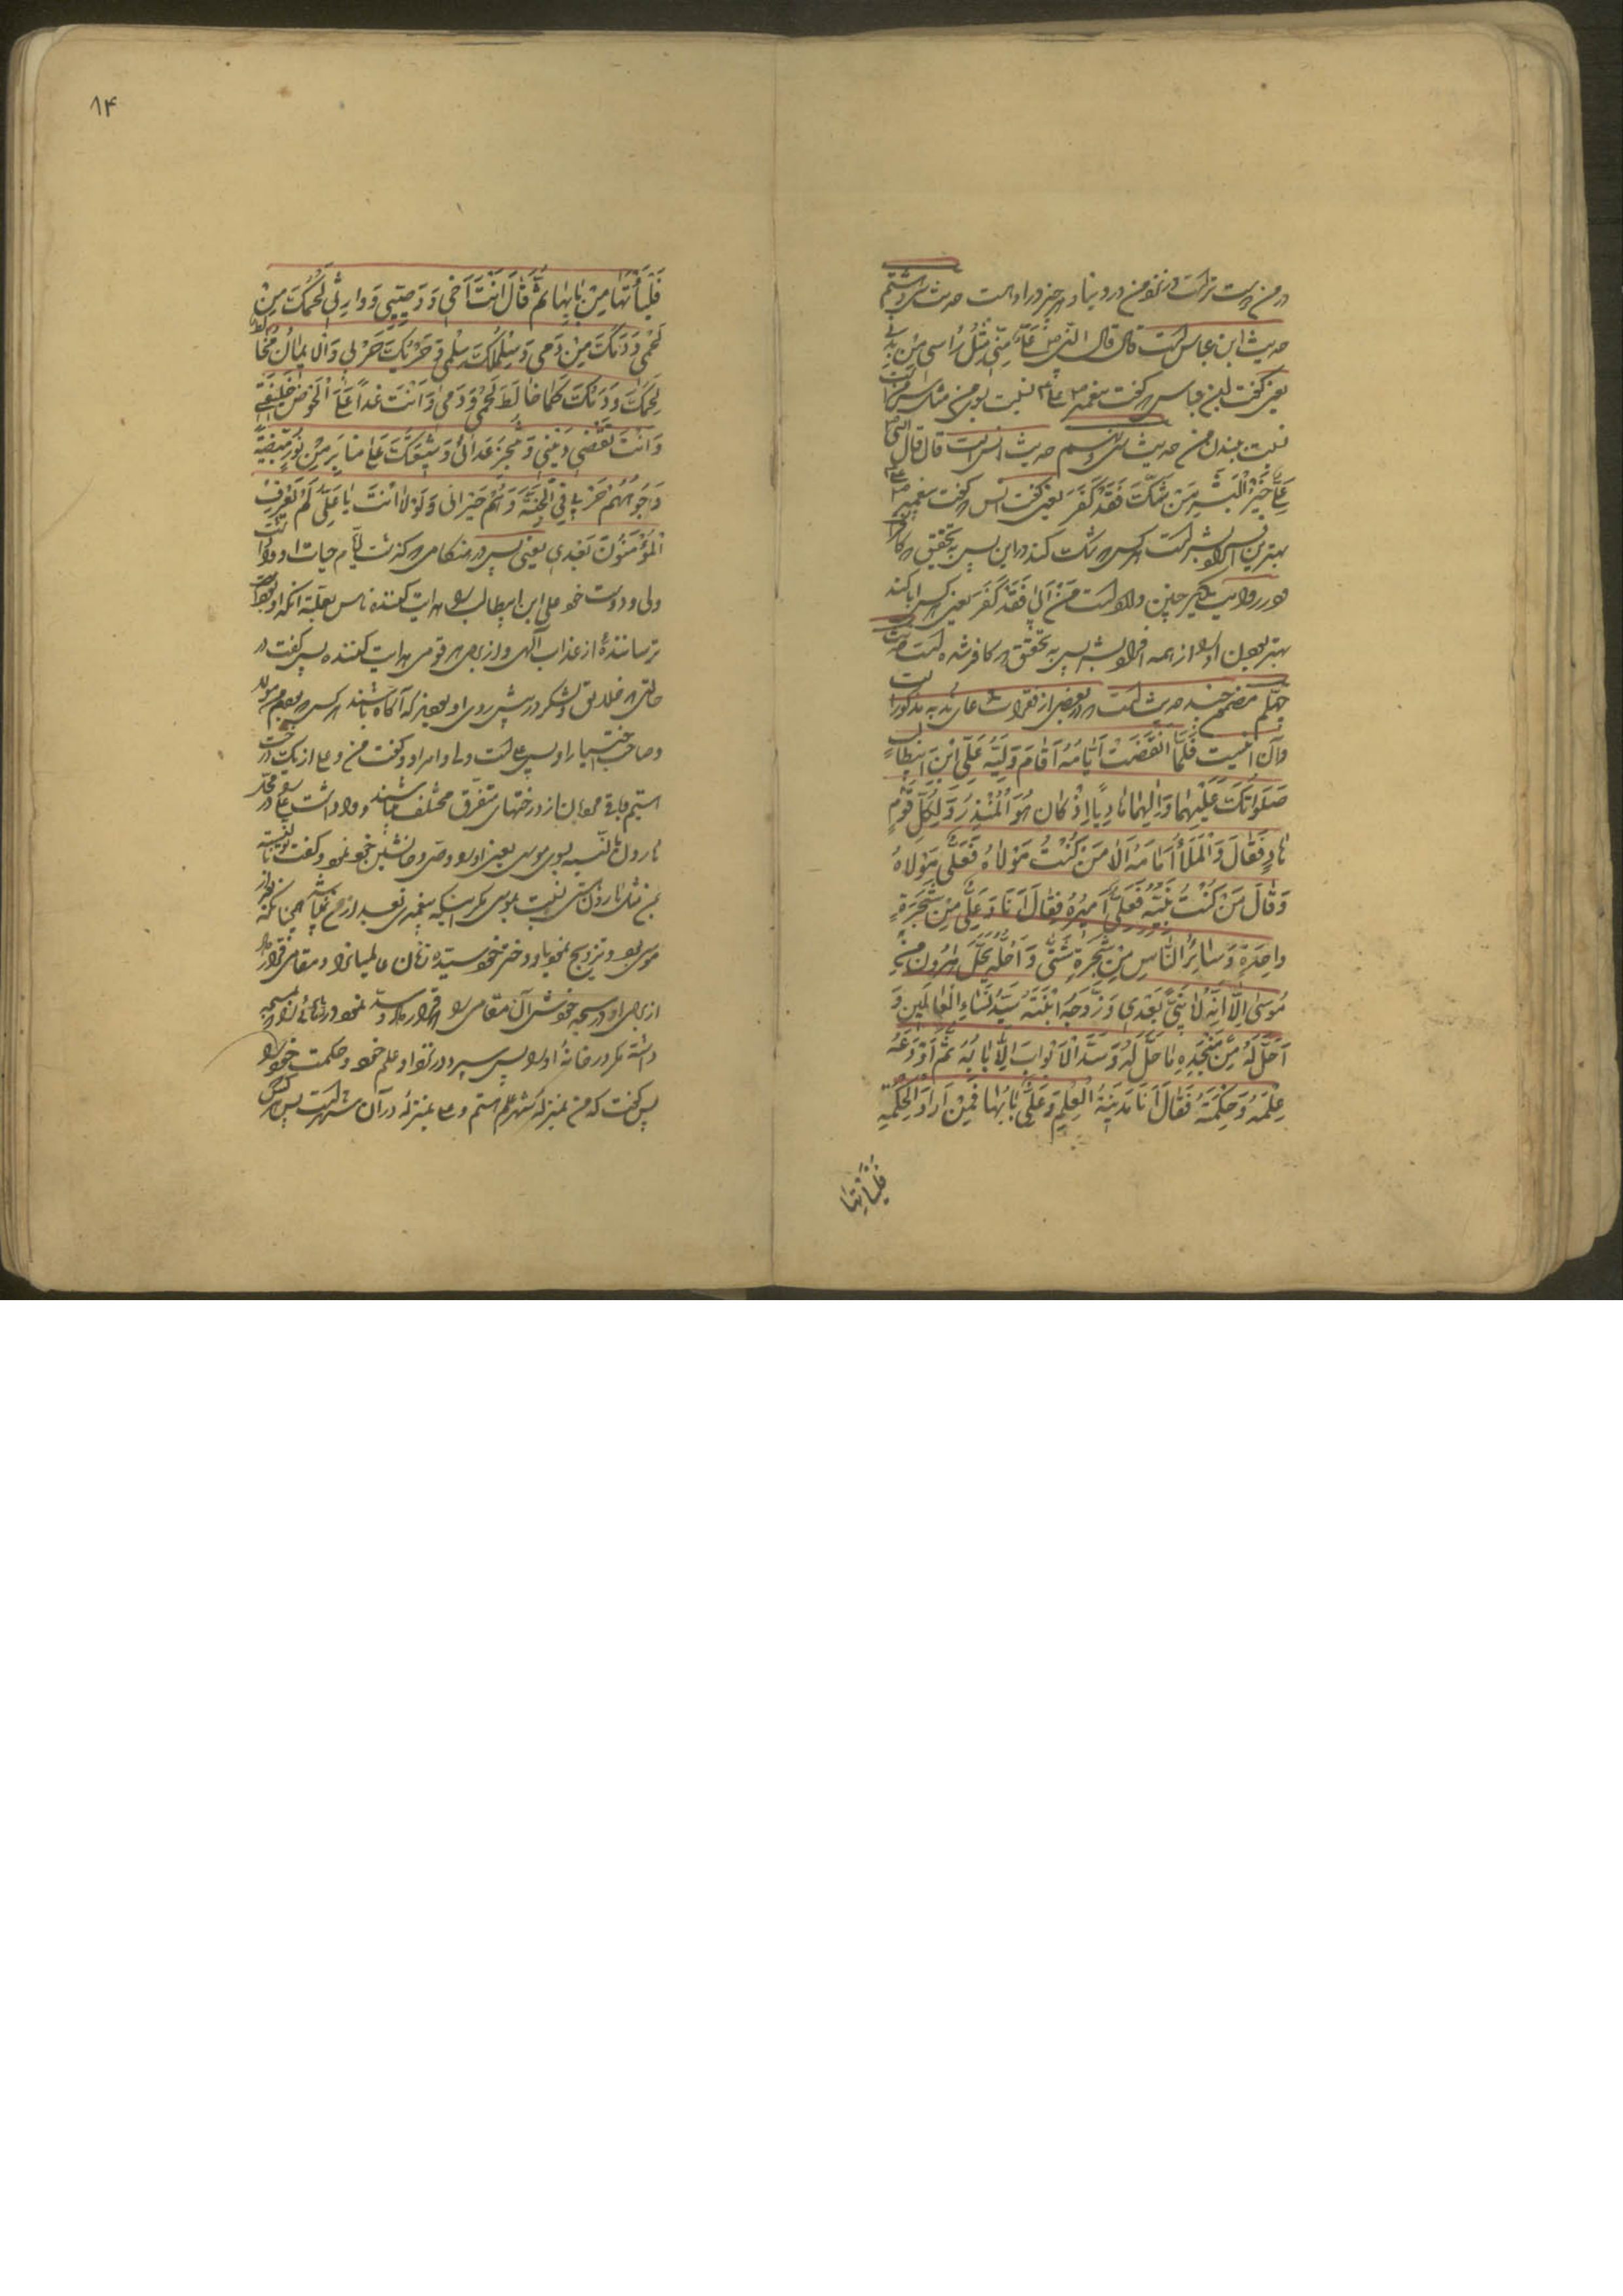 در من است تراست در نزد من در دنیا و هر چیز در او است حدیث سی و هشتم
حدیث ابن عباس است قال قال النبی ص علی منی مثل راسی من بدنی
یعنی گفت ابن عباس که گفت پیغمبر ص که علی ع نسبت بمن مثل سر من است
نسبت ببدن من حدیث سی و نهم حدیث انس است قال قال النبی ص
عَلِیٌّ خَیْرُ الْبَشَرِ مَنْ شَکَّ فَقَدْ کَفَرَ یعنی گفت انس که گفت پیغمبر ص که علی ع
بهترین افراد بشر است هر کس که شک کند در این پس به تحقیق که کافر است
و در روایت دیگر چنین وارد است مَنْ اَبٰی فَقَدْ کَفَرَ یعنی هر کس ابا کند
بهتر بودن او را از همه افراد بشر پس به تحقیق که کافر شده است حدیث
چهلم متضمن چند حدیث است که در بعضی از فقرات دعای ندبه مذکور است
و آن اینست فَلَمَّا انْقَضَتْ اَیّٰامُهُ اَقٰامَ وَلِیَّهُ عَلِیَّ ابْنَ ابیطٰالب
صَلَوٰاتُکَ عَلَیْهِمٰا وَاٰلِهِمٰا هٰادِیًا اِذْ کٰانَ هُوَ الْمُنْذِرُ وَلِکُلِّ قَوْمٍ
هٰادٍ فَقٰالَ وَالْمَلَأُ اَمٰامَهُ اَلٰا مَنْ کُنْتُ مَوْلٰاهُ فَعَلِیٌّ مَوْلٰاهُ
وَقٰالَ مَنْ کُنْتُ نَبِیُّهُ فَعَلِیٌّ اَمیٖرُهُ فَقٰالَ اَنَا وَعَلِیٌّ مِنْ شَجَرَةٍ
وٰاحِدَةٍ وَسٰائِرُ النّٰاسِ مِنْ شَجَرَةٍ شَتّٰی وَاَحَلَّهُ مَحَلَّ هٰرُونَ مِنْ
مُوسٰی اِلّٰا اَنَّهُ لٰا نَبِیَّ بَعْدِی وَزَوَّجَهُ ابْنَتَهُ سَیِّدَةَ نِسٰاءِ الْعٰالَمِینَ وَ
اَحَلَّ لَهُ مِنْ مَسْجِدِهِ مٰا حَلَّ لَهُ وَسَدَّ الْاَبْوٰابَ اِلّٰا بٰابَهُ ثُمَّ اَوْدَعَهُ
عِلْمَهُ وَحِکْمَتَهُ فَقٰالَ اَنَا مَدِینَةُ الْعِلْمِ وَعَلِیٌّ بٰابُهٰا فَمَنْ اَرٰادَ الْحِکْمَةَ
فَلْیَأْتِهٰا
۱۴
فَلْیَأْتِهٰا مِنْ بٰابِهٰا ثُمَّ قٰالَ اَنْتَ اَخِی وَ وَصِیّی وَوٰارِثِی لَحْمُکَ مِنْ
لَحْمِی وَدَمُکَ مِنْ دَمِی وَسِلْمُکَ سِلْمِی وَحَرْبُکَ حَرْبِی وَالْایمٰانُ مُخٰالِطٌ
لَحْمَکَ وَدَمَکَ کَمٰا خٰالَطَ لَحْمِی وَدَمِی وَاَنْتَ غَداً عَلَی الْحَوْضِ خَلِیفَتِی
وَاَنْتَ تَقْضِی دَیْنِی وَتُنْجِزُ عِدٰاتِی وَشِیعَتُکَ عَلٰی مَنٰابِرَ مِنْ نُورٍ مُبْیَضَّةً
وُجُوهُهُمْ حَوْلِی فِی الْجَنَّةِ وَهُمْ جِیرٰانِی وَلَوْلٰا اَنْتَ یٰا عَلِیُّ لَمْ یُعْرَفِ
الْمُؤْمِنُونَ بَعْدِی یعنی پس در هنگامی که گذشت ایام حیات او واداشت
ولی و دوست خود علی ابن ابیطالب را هدایت کننده ناس بعلت آنکه او بود
ترساننده از عذاب الهی و از برای هر قومی هدایت کننده پس گفت در
حالتی که خلایق و لشکر در پیش روی او بودند که آگاه باشید هر کس که بودم من مولای
و صاحب اختیار او پس علی است مولا و امیر او و گفت من و علی از یک درخت
هستیم و باقی مردمان از درختهای متفرق مختلف میباشند و واداشت علی را در محل
هارون که نسبت بموسی یعنی او را وصی و جانشین خود نمود و گفت تو نسبت
بمن مثل هارونی نسبت بموسی مگر اینکه پیغمبری بعد از من نمیباشد همچنانکه بعد از
موسی بود و تزویج نمود باو دختر خود سیده زنان عالمیان را و مقامی قرار داد
از برای او در مسجد خودش آن مقامی که قرار داد و سد نمود درهای مسجد
داشته مگر در خانه او را پس سپرد در نزد او علم خود و حکمت خود را
پس گفت که من بمنزله شهر علم هستم و علی بمنزله در آن شهر است پس هر کس